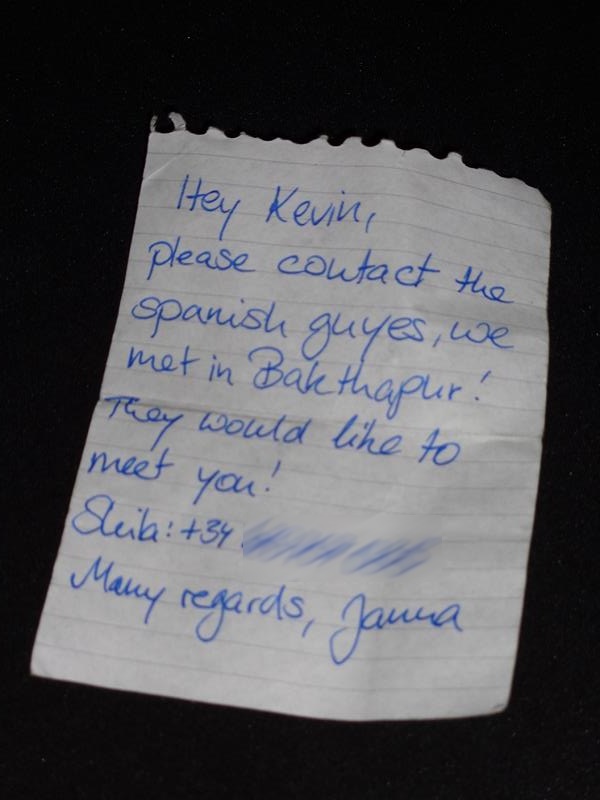 Hey Kevin,
please contact the
spanish guyes, we
met in Bakthapur!
They would like to
meet you!
+34
Many regards, Janna